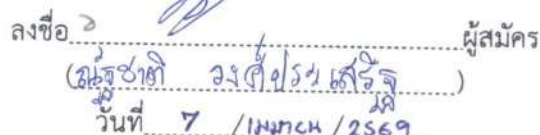 ลงชื่อ ผู้สมัคร
(ณัฐชาติ วงศ์ประเสริฐ)
วันที่ 7 /เมษายน /2569